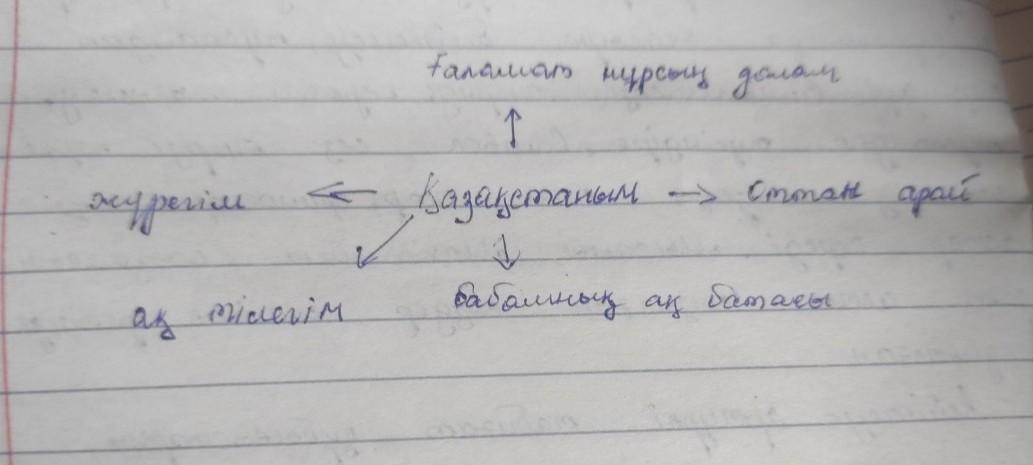 Ғаламат нұрсың далам
жүрегім ← Қазақстаным → Аттан арай
ақ тілегім бабамның ақ батасы